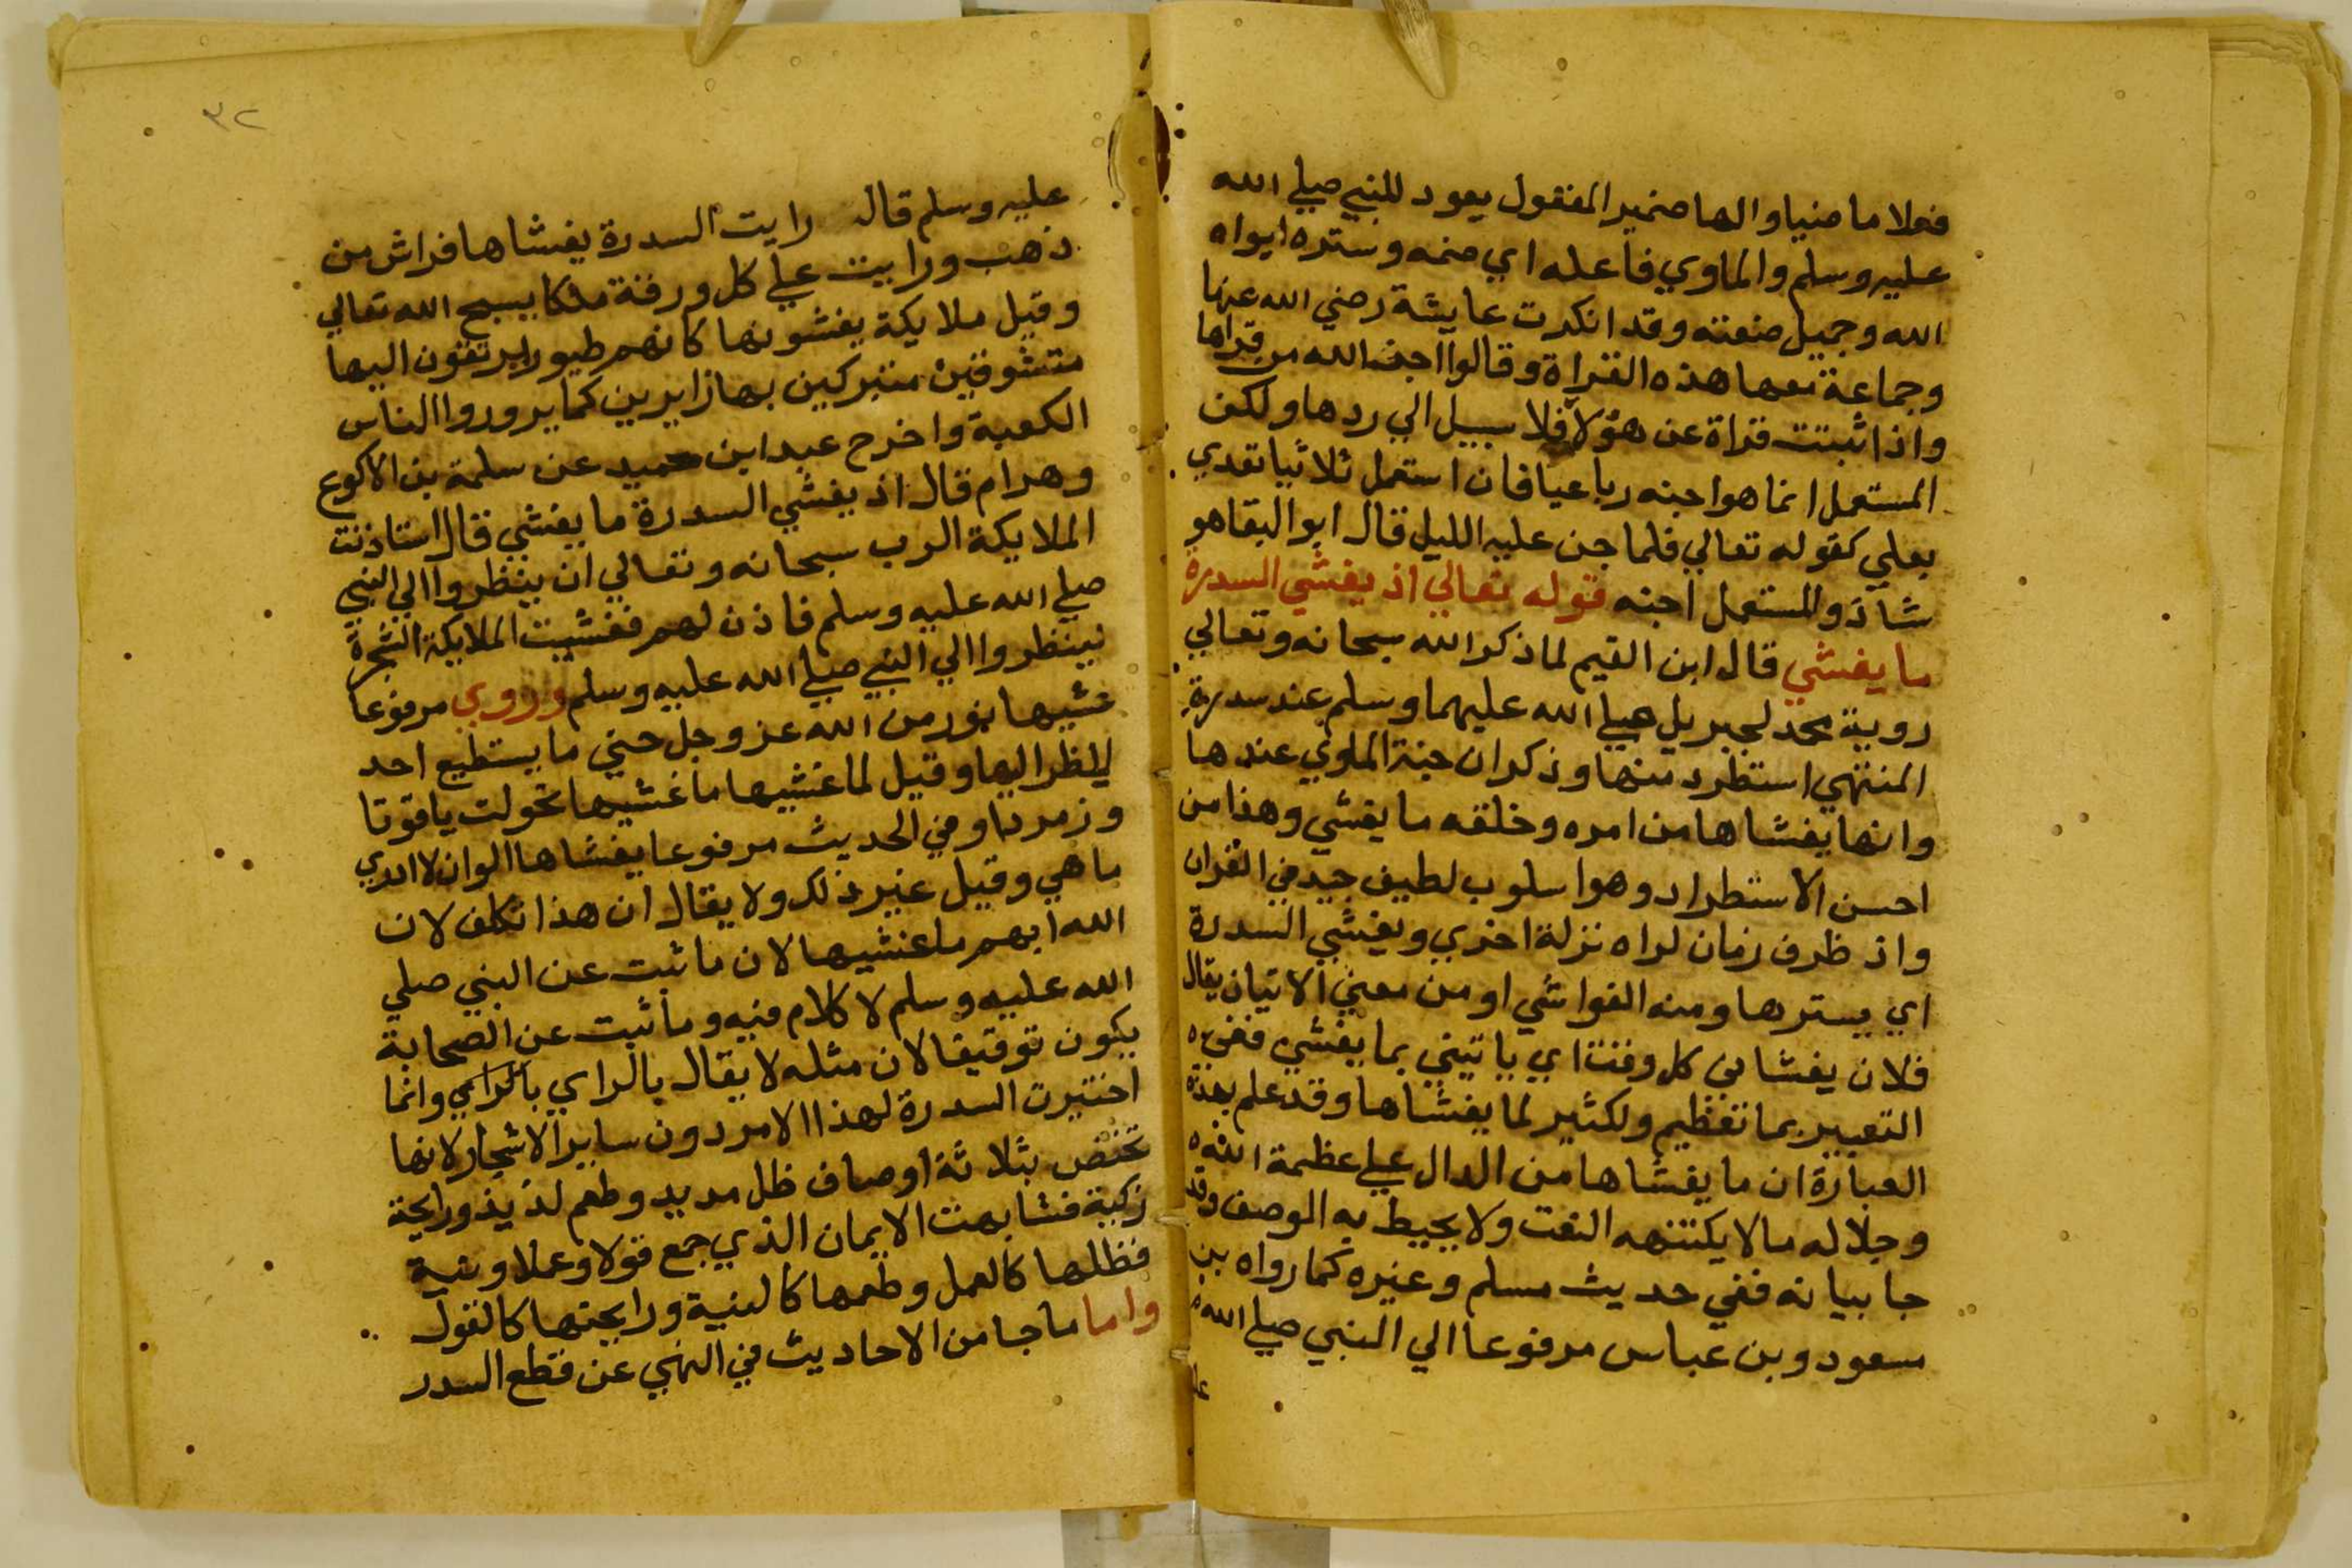 فعلا ماضيا والها ضمير المفعول يعود للنبي صلي الله
عليه وسلم والماوي فاعله اي ضمه وستره ايواه
الله وجميل صنعته وقد انكرت عايشة رضي الله عنها
وجماعة معها هذه القراة وقالوا اجن الله من قراها
واذا ثبتت قراة عن هؤلا فلا سبيل الي ردها ولكن
المستعمل انما هو اجنه رباعيا فان استعمل ثلاثيا تعدي
بعلي كقوله تعالي فلما جن عليه الليل قال ابو البقا هو
شاذ والمستعمل اجنه قوله تعالي اذ يغشي السدرة
ما يغشي قال ابن القيم لما ذكر الله سبحانه وتعالي
روية محمد لجبريل صلي الله عليهما وسلم عند سدرة
المنتهي استطرد منها وذكر ان جنة الماوي عندها
وانها يغشاها من امره وخلقه ما يغشي وهذا من
احسن الاستطراد وهو اسلوب لطيف جيد في القران
واذ ظرف زمان لراه نزلة اخري ويغشي السدرة
اي يسترها ومنه الغواشي او من معني الاتيان يقال
فلان يغشاني كل وقت اي ياتيني بما يغشي ففي
التعبير بما تعظيم ولكثير لما يغشاها وقد علم بهذه
العبارة ان ما يغشاها من الدال علي عظمة الله
وجلاله ما لا يكتنهه النعت ولا يحيط به الوصف وقد
جا بيانه ففي حديث مسلم وغيره كما رواه بن
مسعود وبن عباس مرفوعا الي النبي صلي الله
علي
٣٢
عليه وسلم قال رايت السدرة يغشاها فراش من
ذهب ورايت علي كل ورقة ملكا يسبح الله تعالي
وقيل ملايكة يغشونها كانهم طيور يرتقون اليها
متشوقين متبركين بها زايرين كما يزوروا الناس
الكعبة واخرج عبد ابن حميد عن سلمة بن الاكوع
وهرام قال اذ يغشي السدرة ما يغشي قال استاذنت
الملايكة الرب سبحانه وتعالي ان ينظروا الي النبي
صلي الله عليه وسلم فاذن لهم فغشيت الملايكة الشجرة
لينظروا الي النبي صلي الله عليه وسلم وروي مرفوعا
غشيها نور من الله عز وجل حتي ما يستطيع احد
ينظر اليها وقيل لما غشيها ما غشيها تحولت ياقوتا
وزمردا وفي الحديث مرفوعا يغشاها الوان لا ادري
ما هي وقيل غير ذلك ولا يقال ان هذا تكلف لان
الله ابهم ما غشيها لان ما ثبت عن النبي صلي
الله عليه وسلم لا كلام فيه وما ثبت عن الصحابة
يكون توقيفا لان مثله لا يقال بالراي بالراي وانما
اختيرت السدرة لهذا الامر دون ساير الاشجار لانها
تختص بثلاثة اوصاف ظل مديد وطعم لذيذ ورايحة
زكية فشابهت الايمان الذي جمع قولا وعملا ونية
فظلها كالعمل وطعمها كالنية ورايحتها كالقول
واما ما جا من الاحاديث في النهي عن قطع السدر